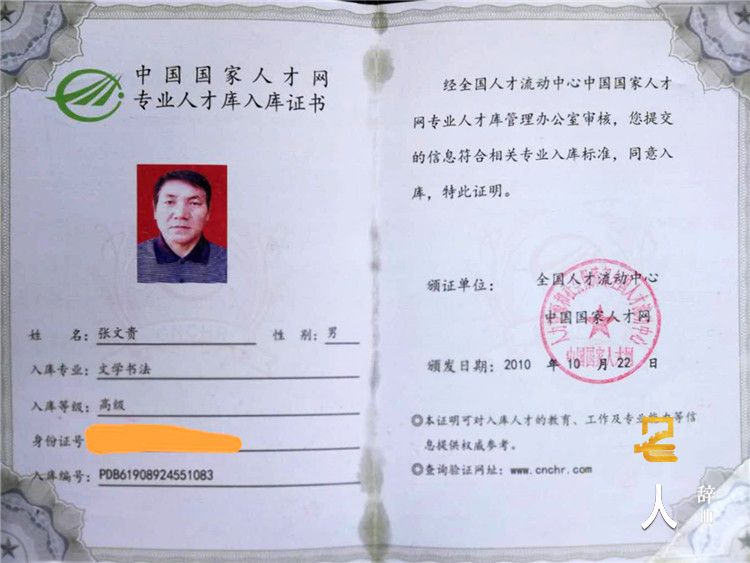 中国国家人才网
专业人才库入库证书
姓 名：张文贵 性 别：男
入库专业：文学书法
入库等级：高级
身份证号
入库编号：PDB61908924551083
经全国人才流动中心中国国家人才
网专业人才库管理办公室审核，您提交
的信息符合相关专业入库标准，同意入
库，特此证明。
颁证单位： 全国人才流动中心
中国国家人才网
颁发日期：2010 年 10 月 22 日
◎本证明可对入库人才的教育、工作及专业能力等信
息提供权威参考。
◎查询验证网址：www.cnchr.com
人